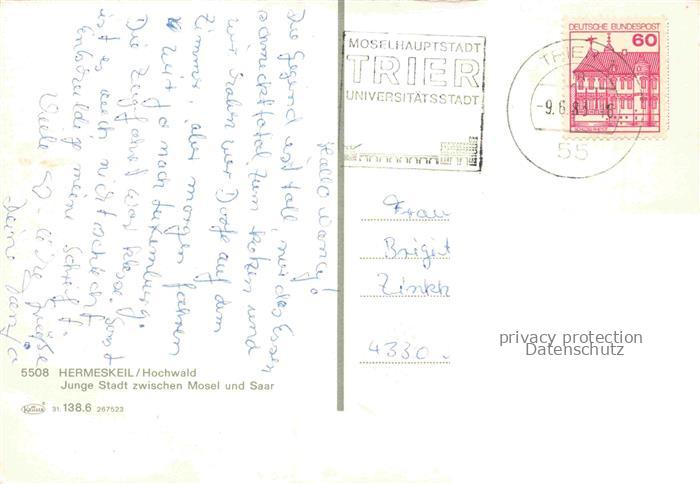 Hallo Mamy!
Die Gegend ist toll, nur das Essen
schmeckt total zum kotzen und
wir haben vier Dofe auf dem
Zimmer, aber morgen fahren
wir ja nach Luxemburg.
Die Zugfahrt war klasse. Sonst
ist es auch nicht schlecht.
Entschuldige meine Schrift.
Viele liebe Grüße
Deine Tanja
5508 HERMESKEIL/Hochwald
Junge Stadt zwischen Mosel und Saar
Krüger 31.138.6 267523
MOSELHAUPTSTADT
TRIER
UNIVERSITÄTSSTADT
TRIER
-9.6.83
55
DEUTSCHE BUNDESPOST
60
Frau
Brigit
Zinkh
4330
privacy protection
Datenschutz